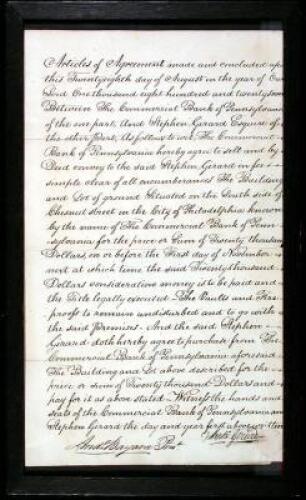 Articles of Agreement made and concluded upon
this Twentyeighth day of August in the year of Our
Lord One thousand eight hundred and twentyseven
Between The Commercial Bank of Pennsylvania
of the one part, and Stephen Girard Esquire of
the other Part, As follows to wit. The Commercial
Bank of Pennsylvania hereby agree to sell and by
Deed convey to the said Stephen Girard in fee
simple clear of all incumberances The Building
and Lot of ground Situated on the South side of
Chesnut street in the City of Philadelphia known
by the name of The Commercial Bank of Penn-
sylvania for the price or Sum of Twenty thousand
Dollars on or before the First day of November
next at which time the said Twenty thousand
Dollars consideration money is to be paid and
the Title legally executed. The Vaults and Fire
proofs to remain undisturbed and to go with
the said Premises. And the said Stephen
Girard doth hereby agree to purchase from The
Commercial Bank of Pennsylvania aforesaid
The Building and Lot above described for the
price or sum of Twenty thousand Dollars and
pay for it as above stated. Witness the hands and
seals of the Commercial Bank of Pennsylvania and
Stephen Girard the day and year first above written
Andw Bayard Prest
Girard